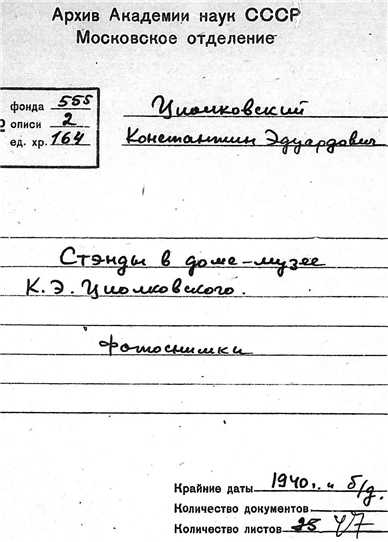 Архив Академии наук СССР
Московское отделение
фонда 555
№ описи 2
ед. хр. 164
Циолковский
Константин Эдуардович
Стэнды в доме-музее
К. Э. Циолковского.
Фотоснимки
Крайние даты 1940 г. и б/д.
Количество документов
Количество листов 47